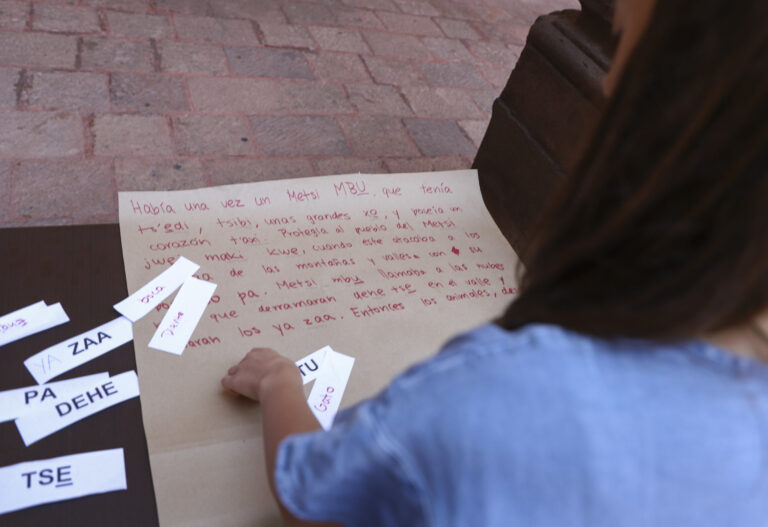 Había una vez un Metsi MBU̲ que tenía
ts'e̲di, tsibi, unas grandes xo̲, y poseía un
corazón t'axi. Protegía al pueblo del Metsi
jwe̲ maki kwe, cuando este atacaba a los
de las montañas y valles con su
pa. Metsi mbu̲ llamaba a las nubes
que derramaran dehe tse̲ en el valle y
los ya zaa. Entonces los animales,
YA ZAA
PA
DEHE
TSE̲
TU
Gato